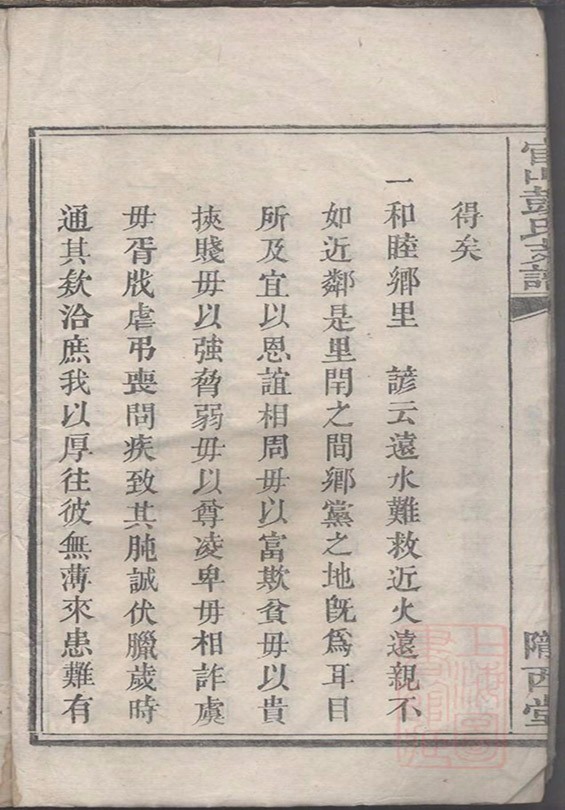 官山彭氏支譜
隴西堂
得矣
一和睦鄉里　諺云遠水難救近火遠親不
如近鄰是里閈之間鄉黨之地旣爲耳目
所及宜以恩誼相周毋以富欺貧毋以貴
挾賤毋以強脅弱毋以尊凌卑毋相詐虞
毋胥戕虐弔喪問疾致其肫誠伏臘歲時
通其欵洽庶我以厚往彼無薄來患難有